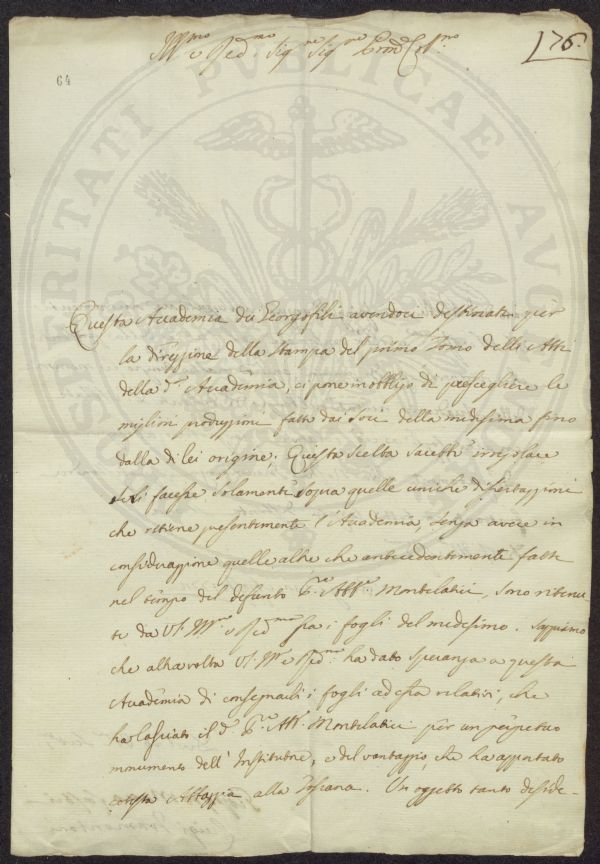 Ill.mo e Rev.mo Sig.re Sig.re P.rone Col.mo
176.
64
PROSPERITATI PUBLICAE AUGENDAE
Questa Accademia dei Georgofili avendoci destinati per
la direzzione della stampa del primo Tomo delli Atti
della d.a Accademia, ci pone in obbligo di prescegliere le
migliori produzzioni fatte dai Soci della medesima fino
dalla di lei origine; Questa scelta sarebbe irregolare
se si facesse solamente sopra quelle uniche dissertazzioni
che ritiene presentemente l'Accademia, senza avere in
considerazzione quelle altre che antecedentemente fatte
nel tempo del defunto P.re Ab.e Montelatici, sono ritenu-
te da V.S. Ill.ma e Rev.ma fra i fogli del medesimo. Sappiamo
che altra volta V.S. Ill.ma e Rev.ma ha dato speranza a questa
Accademia di consegnarli i fogli ad essa relativi, che
ha lasciato il d.o P.re Ab.e Montelatici per un perpetuo
monumento dell' Institutore, e del vantaggio, che ha apportato
cotesta Abbazzia alla Toscana. Un oggetto tanto deside-